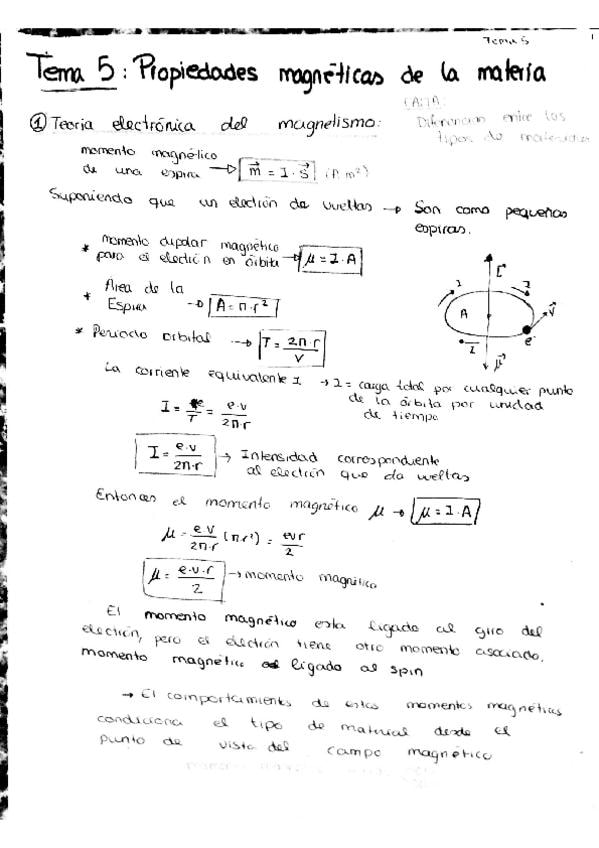 Tema 5
1
Tema 5: Propiedades magnéticas de la materia
① Teoria electrónica del magnetismo:
Diferencian entre los
tipos de materiales
momento magnético
de una espira → m⃗ = I · S⃗ (A m²)
Suponiendo que un electrón da vueltas → Son como pequeñas
espiras.
* momento dipolar magnético
para el electrón en órbita → μ = I · A
* Area de la
Espira → A = π · r²
* Periodo orbital → T = 2π · r / v
I
I
L⃗
A
v⃗
e⁻
I
μ⃗
La corriente equivalente I → I = carga total por cualquier punto
de la órbita por unidad
de tiempo
I = e / T = e · v / 2π · r
I = e · v / 2π · r → Intensidad correspondiente
al electrón que da vueltas
Entonces el momento magnético μ → μ = I · A
μ = e · v / 2π · r (π r²) = e v r / 2
μ = e · v · r / 2 → momento magnético
El momento magnético esta ligado al giro del
electrón, pero el electrón tiene otro momento asociado,
momento magnético ligado al spin
→ El comportamiento de estos momentos magnéticos
condiciona el tipo de material desde el
punto de vista del campo magnético